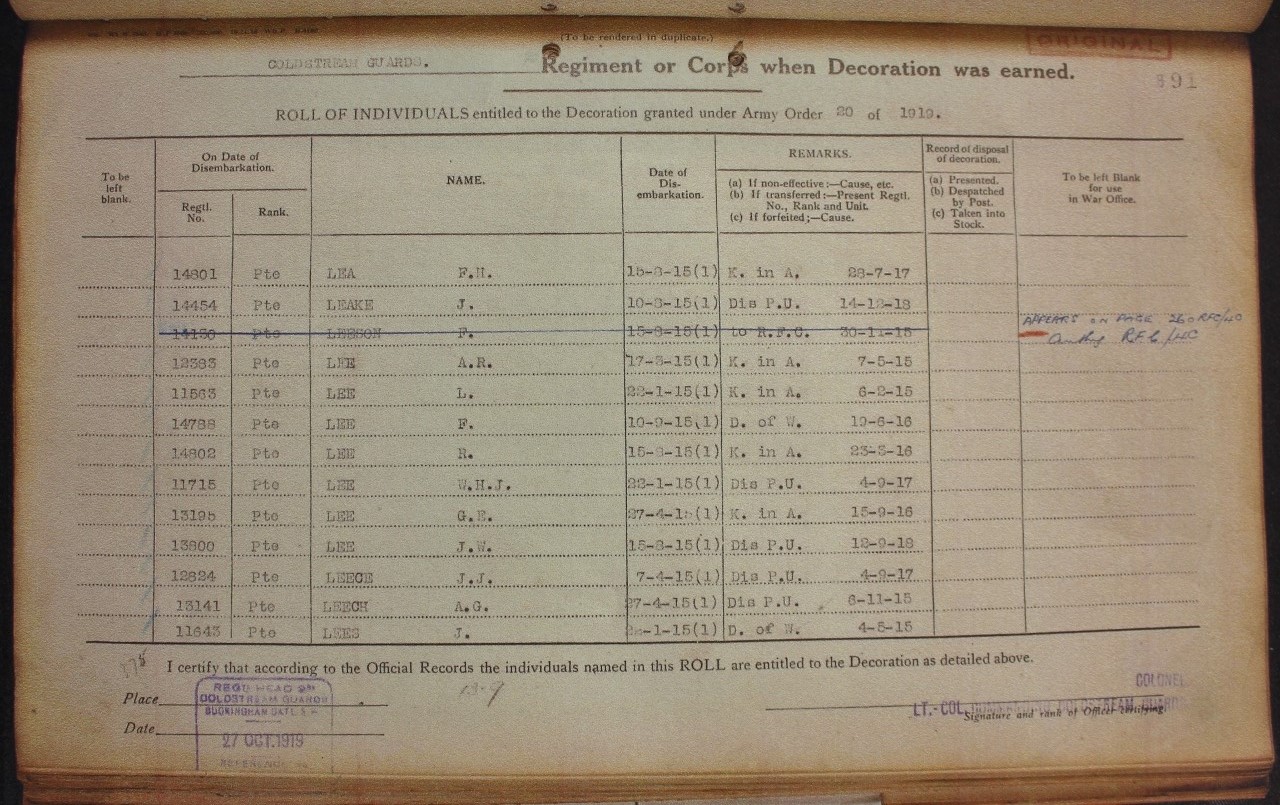 (To be rendered in duplicate.)
ORIGINAL
COLDSTREAM GUARDS. Regiment or Corps when Decoration was earned.
91
ROLL OF INDIVIDUALS entitled to the Decoration granted under Army Order 20 of 1919.
To be left blank. On Date of Disembarkation. Regtl. No. Rank. NAME. Date of Dis-embarkation. REMARKS. (a) If non-effective:—Cause, etc. (b) If transferred:—Present Regtl. No., Rank and Unit. (c) If forfeited;—Cause. Record of disposal of decoration. (a) Presented. (b) Despatched by Post. (c) Taken into Stock. To be left Blank for use in War Office.
14801 Pte LEA F.H. 15-8-15(1) K. in A. 28-7-17
14454 Pte LEAKE J. 10-8-15(1) Dis P.U. 14-12-18
14130 Pte LEESON F. 15-8-15(1) to R.F.C. 30-11-15 APPEARS ON PAGE 260 RFC/4C
RFC/4C
12383 Pte LEE A.R. 17-3-15(1) K. in A. 7-5-15
11563 Pte LEE L. 22-1-15(1) K. in A. 6-2-15
14788 Pte LEE F. 10-9-15(1) D. of W. 19-6-16
14802 Pte LEE R. 15-8-15(1) K. in A. 23-3-16
11715 Pte LEE W.H.J. 22-1-15(1) Dis P.U. 4-9-17
13195 Pte LEE G.E. 27-4-15(1) K. in A. 15-9-16
13800 Pte LEE J.W. 15-8-15(1) Dis P.U. 12-9-18
12824 Pte LEECE J.J. 7-4-15(1) Dis P.U. 4-9-17
13141 Pte LEECH A.G. 27-4-15(1) Dis P.U. 6-11-15
11643 Pte LEES J. 22-1-15(1) D. of W. 4-5-15
I certify that according to the Official Records the individuals named in this ROLL are entitled to the Decoration as detailed above.
Place
REGTL HEAD QRS
COLDSTREAM GUARDS
BUCKINGHAM GATE
27 OCT.1919
Date
COLONEL
LT.-COL. COLDSTREAM GUARDS
Signature and rank of Officer certifying.